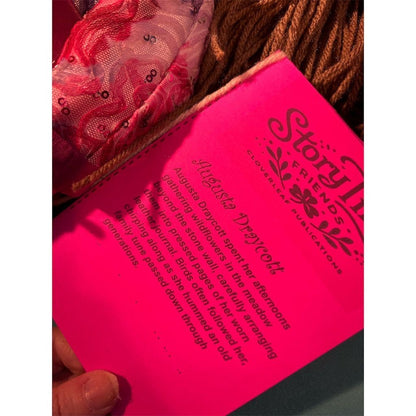 Story Tim
FRIENDS
CLOVERLEAF PUBLICATIONS
Augusta Draycott
Augusta Draycott spent her afternoons
gathering wildflowers in the meadow
beyond the stone wall, carefully arranging
them into pressed pages of her worn
leather journal. Birds often followed her,
chirping along as she hummed an old
family tune passed down through
generations.